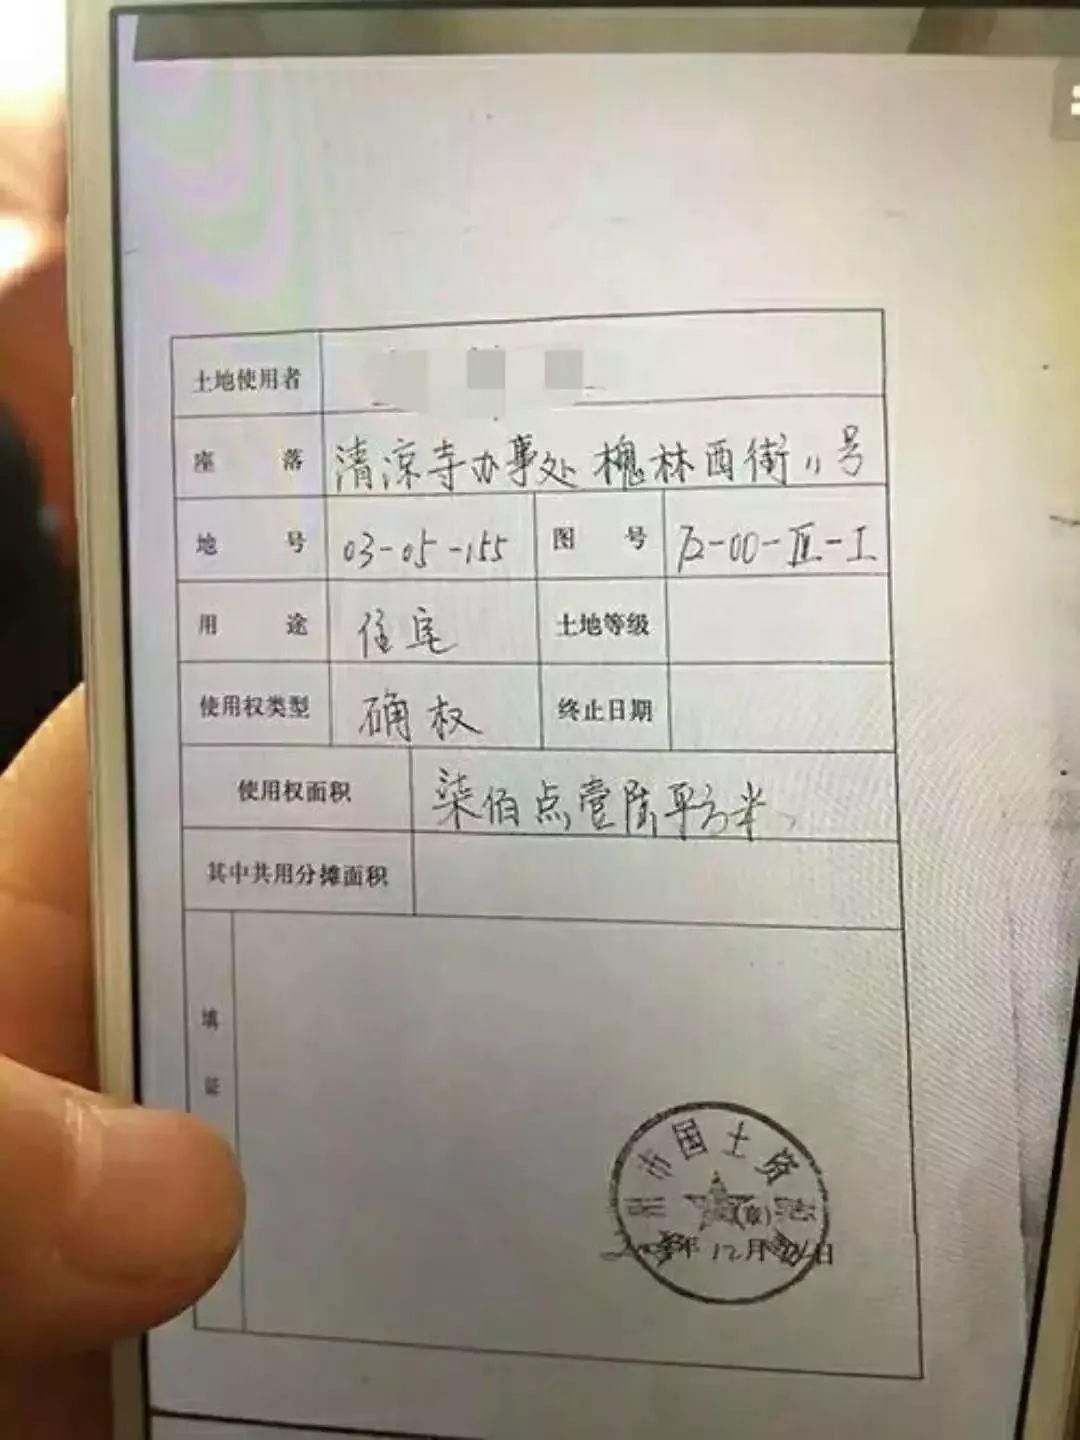 土地使用者
座 落 清凉寺办事处槐林西街11号
地 号 03-05-155 图 号 72-00-Ⅲ-Ⅰ
用 途 住宅 土地等级
使用权类型 确权 终止日期
使用权面积 柒佰点壹陆平方米
其中共用分摊面积
填
证
市国土资
(章)
年12月 日